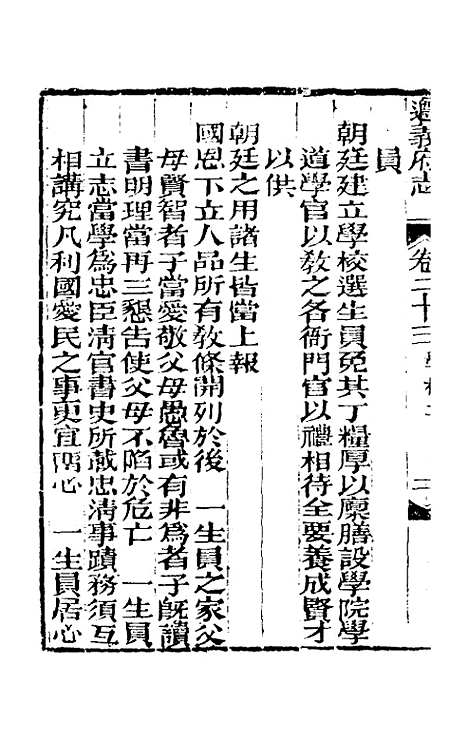 遵義府志
卷二十三 學校二 二
員
朝廷建立學校選生員免其丁糧厚以廩膳設學院學
道學官以教之各衙門官以禮相待全要養成賢才
以供
朝廷之用諸生皆當上報
國恩下立人品所有敎條開列於後 一生員之家父
母賢智者子當愛敬父母愚魯或有非爲者子旣讀
書明理當再三懇告使父母不陷於危亡 一生員
立志當學爲忠臣淸官書史所載忠淸事蹟務須互
相講究凡利國愛民之事更宜留心 一生員居心